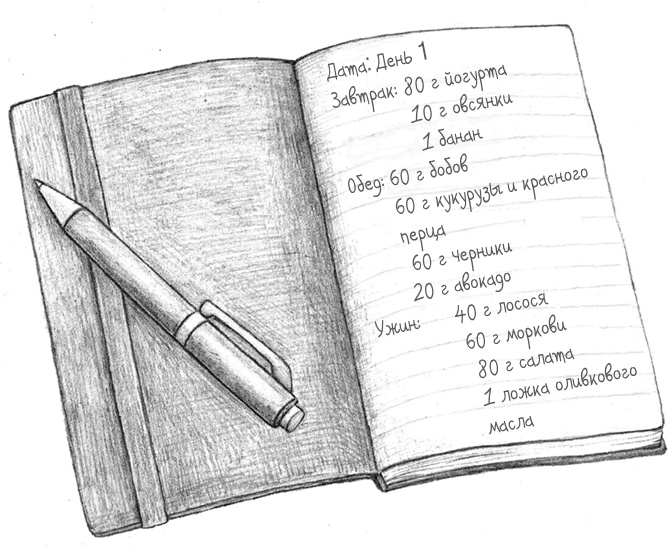 Дата: День 1
Завтрак: 80 г йогурта
10 г овсянки
1 банан
Обед: 60 г бобов
60 г кукурузы и красного
перца
60 г черники
20 г авокадо
Ужин: 40 г лосося
60 г моркови
80 г салата
1 ложка оливкового
масла